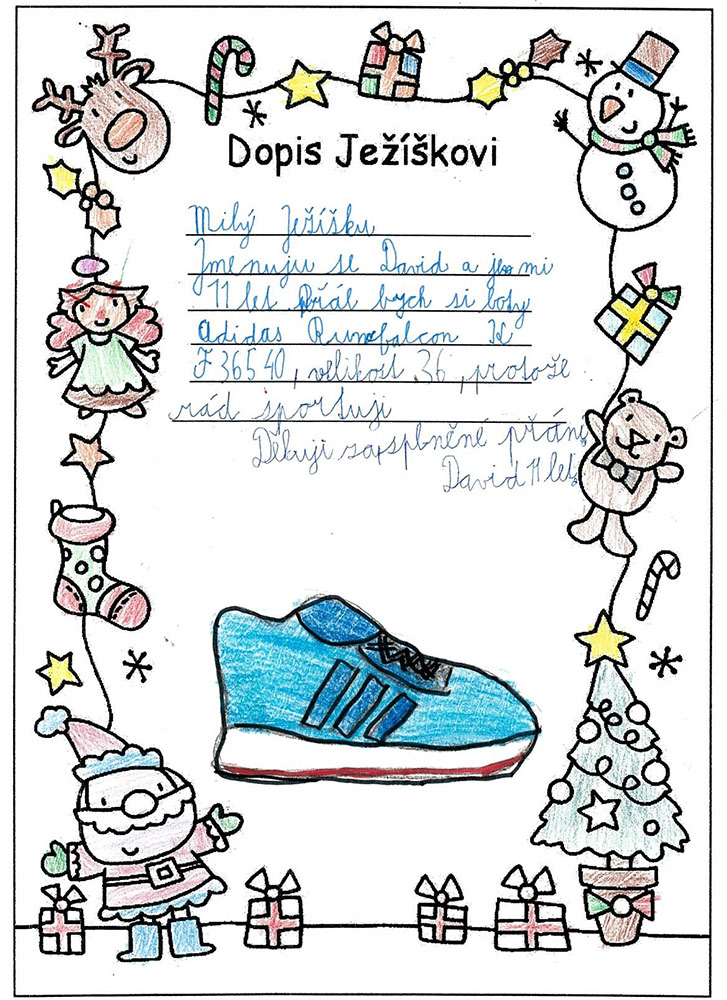 Dopis Ježíškovi
Milý Ježíšku
Jmenuju se David a je mi
11 let Přál bych si boty
Adidas Runfalcon K
F36540, velikost 36, protože
rád sportuji
Děkuji za splněné přání
David 11 let